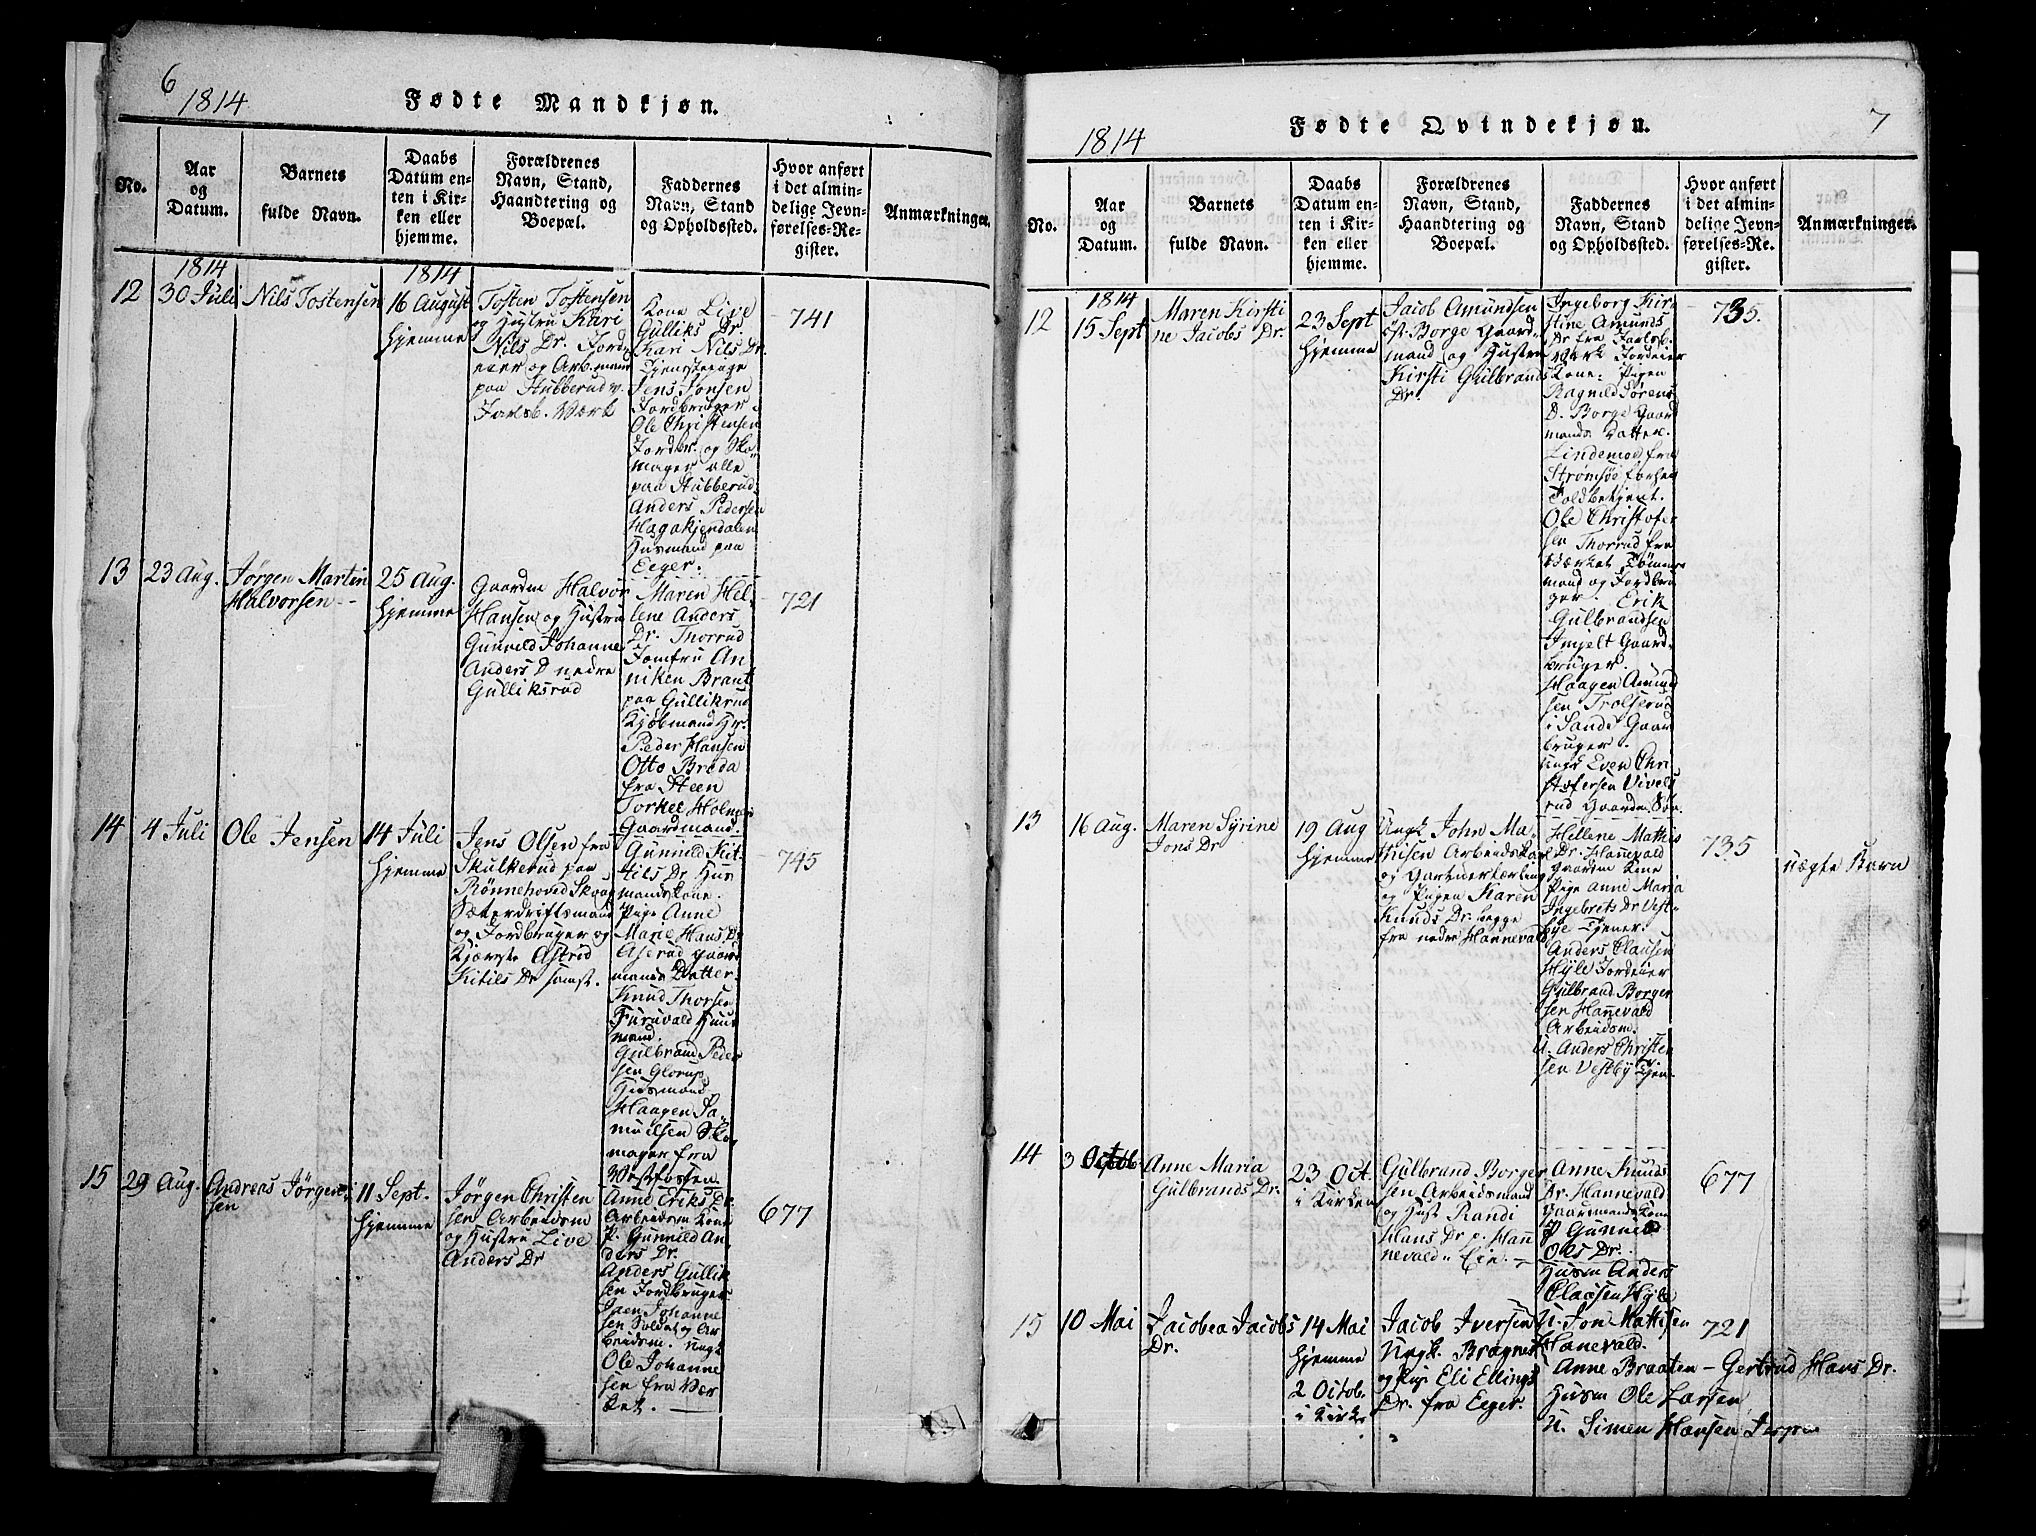 6
1814
Fødte Mandkjøn.
No.
Aar
og
Datum.
Barnets
fulde Navn.
Daabs
Datum en-
ten i Kir-
ken eller
hjemme.
Forældrenes
Navn, Stand,
Haandtering og
Boepæl.
Faddernes
Navn, Stand
og Opholdssted.
Hvor anført
i det almin-
delige Jevn-
førelses-Re-
gister.
Anmærkninger.
12
1814
30 Juli
Nils Tostensen
1814
16 August
hjemme
Tosten Tostensen
og Hustru Kari
Nils Dr. Jord
eier og Arb.mand
paa Stubberud v.
Jarlsb. Værk
Kone Live
Gulliks Dr.
Kari Nils Dr.
Tjenestepige
Jens Jonsen
Jordbruger
Ole Christensen
Jordbr. og Sko-
mager alle
paa Stubberud.
Anders Pedersen
Hagakjendalen
Husmand paa
Eeger.
741
13
23 Aug.
Jørgen Martin
Halvorsen
25 Aug.
hjemme
Gaardm Halvor
Hansen og Hustru
Gunnild Johanne
Anders D nedre
Gulliksrud
Maren Hel-
lene Anders
Dr. Thorrud
Jomfru An
niken Brant
paa Gulliksrud
Kjøbmand Hr.
Peder Hansen
Otto Breda
fra Steen
Torkel Holmen
Gaardmand.
721
14
4 Juli
Ole Jensen
14 Juli
hjemme
Jens Olsen fra
Skulkerud paa
Rønnehoved Skoug
Sæterdriftsmand
og Jordbruger og
Kjærste Astrid
Kitils Dr samst.
Gunnild Kit-
tils Dr Hus
mandskone.
Pige Anne
Marie Hans Dr
Aserud gaard
mands Datter
Knud Thorsen
Furuvald Huus
mand.
Gulbrand Peder
sen Glorup
Husmand
Haagen Sa-
muelsen Sko
mager fra
Vestfossen
745
15
29 Aug.
Andreas Jørgen-
sen
11 Sept.
hjemme
Jørgen Christen
sen Arbeidsm
og Hustru Live
Anders Dr
Anne Eriks Dr.
Arbeidsm Kone
P. Gunnild An
ders Dr.
Anders Gullik
sen Jordbruger
Johanne
sen Soldat og Ar
beidsm. Ungk
Ole Johanne
sen fra Vær
ket.
677
7
1814
Fødte Qvindekjøn.
No.
Aar
og
Datum.
Barnets
fulde Navn.
Daabs
Datum en-
ten i Kir-
ken eller
hjemme.
Forældrenes
Navn, Stand,
Haandtering og
Boepæl.
Faddernes
Navn, Stand
og Opholdssted.
Hvor anført
i det almin-
delige Jevn-
førelses-Re-
gister.
Anmærkninger.
12
1814
15 Sept
Maren Kirsti
ne Jacobs Dr.
23 Sept
hjemme
Jacob Amundsen
Borge Gaard-
mand og Hustru
Kirsti Gulbrands
Dr
Ingeborg Kir-
stine Amunds
Dr fra Jarlsb.
Værk Jordeier
Kone. Pigen
Ragnild Sørens
D. Borge Gaard
mands Datter.
Lindemoe fra
Strømsøe forhen
Toldbetjent.
Ole Christofer
sen Thorrud fra
Værket Tømmer
mand og Jordbru
ger. Erik
Gulbrandsen
Gaard-
bruger.
Haagen Amund
sen Trolserud
i Sande Gaard
bruger.
Ungk Even Chri
stofersen Viveld
rud Gaardm. Søn.
735.
13
16 Aug.
Maren Syrine
Jons Dr
19 Aug
hjemme
Ungk John Ma-
thisen Arbeidskarl
og Gartnerlærling
og Pigen Karen
Knuds Dr. begge
fra nedre Hannevald
Hellene Mathis
Dr. Hannevald
Gaardm Kone
Pige Anne Maria
Ingebrets Dr Vest-
bye Tjener.
Anders Clausen
Hyle Jordeier
Gulbrand Borger
sen Hannevald
Arbeidsm.
U. Anders Christen
sen Vestby Tjen.
735
uægte Barn
14
3 Octob
Anne Maria
Gulbrands Dr.
23 Oct.
i Kirken
Gulbrand Borger
sen Arbeidsmand
og Hust Randi
Hans Dr p. Han
nevald Eie.
Anne Knuds
Dr. Hannevald
Gaardmands Kone
P Gunnild
Ols Dr.
Husm Anders
Clausen Hyle
U. Jon Mattisen
Hanevald.
677
15
10 Mai
Jacobea Jacobs
Dr.
14 Mai
hjemme
2 Octob.
i Kirk
Jacob Iversen
Ungk. Bragnes
og Pige Eli Ellings
Dr. fra Eeger.
Anne Braaten - Gertrud Hans Dr.
Husm Ole Larsen
U. Simen Hansen
721